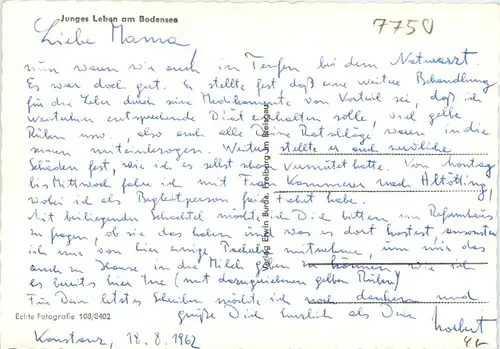 Junges Leben am Bodensee
7750
Liebe Mama,
nun waren wir auch in Teufen bei dem Naturarzt.
Es war doch gut. Er stellte fest daß eine weitere Behandlung
für die Leber durch seine Medikamente von Vorteil sei, daß ich
weiterhin entsprechende Diät einhalten solle, viel gelbe
Rüben usw., also auch alle Deine Ratschläge waren in die
seinen miteinbezogen. Weiter stellte er auch nervliche
Schäden fest, wie ich es selbst schon vermutet hatte. Von Montag
bis Mittwoch fahre ich mit Frau Kammerer nach Altötting,
wobei ich als Begleitperson frei Fahrt habe.
Mit beiliegender Schachtel möchte ich Dich bitten im Reformhaus
zu fragen, ob sie das haben und was es dort kostet ansonsten
ich mir von hier einige Packung mitnehme, um mir das
auch zu Hause in die Milch geben zu können wie ich
es bereits hier tue (mit dazugerechneten gelben Rüben)
Für Dein letztes Schreiben möchte ich noch danken und
grüße Dich herzlich als Dein Norbert
Verlag Erwin Burda, Freiburg im Breisgau
Echte Fotografie 108/8402
Konstanz, 18.8.1962